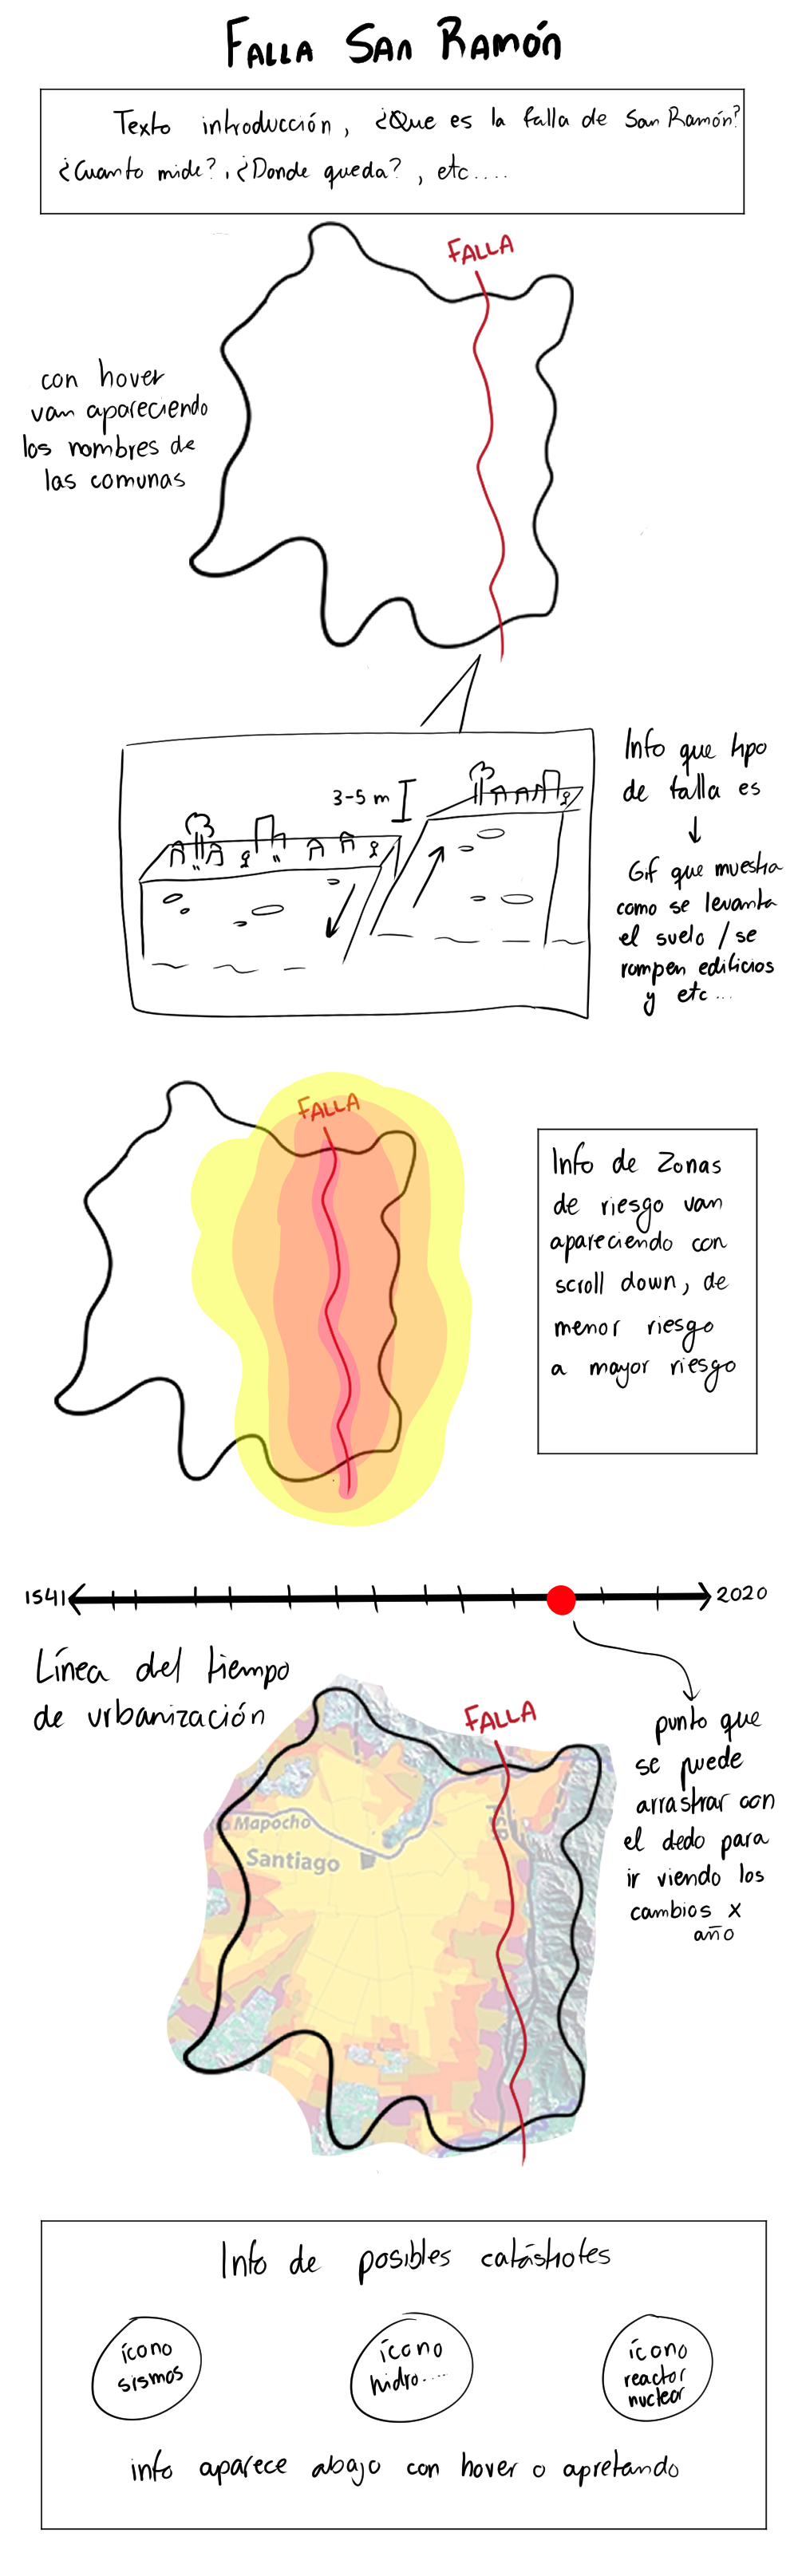 FALLA SAN RAMÓN
Texto introducción, ¿Que es la falla de San Ramón?
¿Cuanto mide?, ¿Donde queda?, etc....
FALLA
con hover
van apareciendo
los nombres de
las comunas
3-5 m
Info que tipo
de falla es
Gif que muestra
como se levanta
el suelo / se
rompen edificios
y etc...
FALLA
Info de Zonas
de riesgo van
apareciendo con
scroll down, de
menor riesgo
a mayor riesgo
1541
2020
Línea del tiempo
de urbanización
FALLA
punto que
se puede
arrastrar con
el dedo para
ir viendo los
cambios x
año
Mapocho
Santiago
Info de posibles catástrofes
ícono
sismos
ícono
hidro.....
ícono
reactor
nuclear
info aparece abajo con hover o apretando